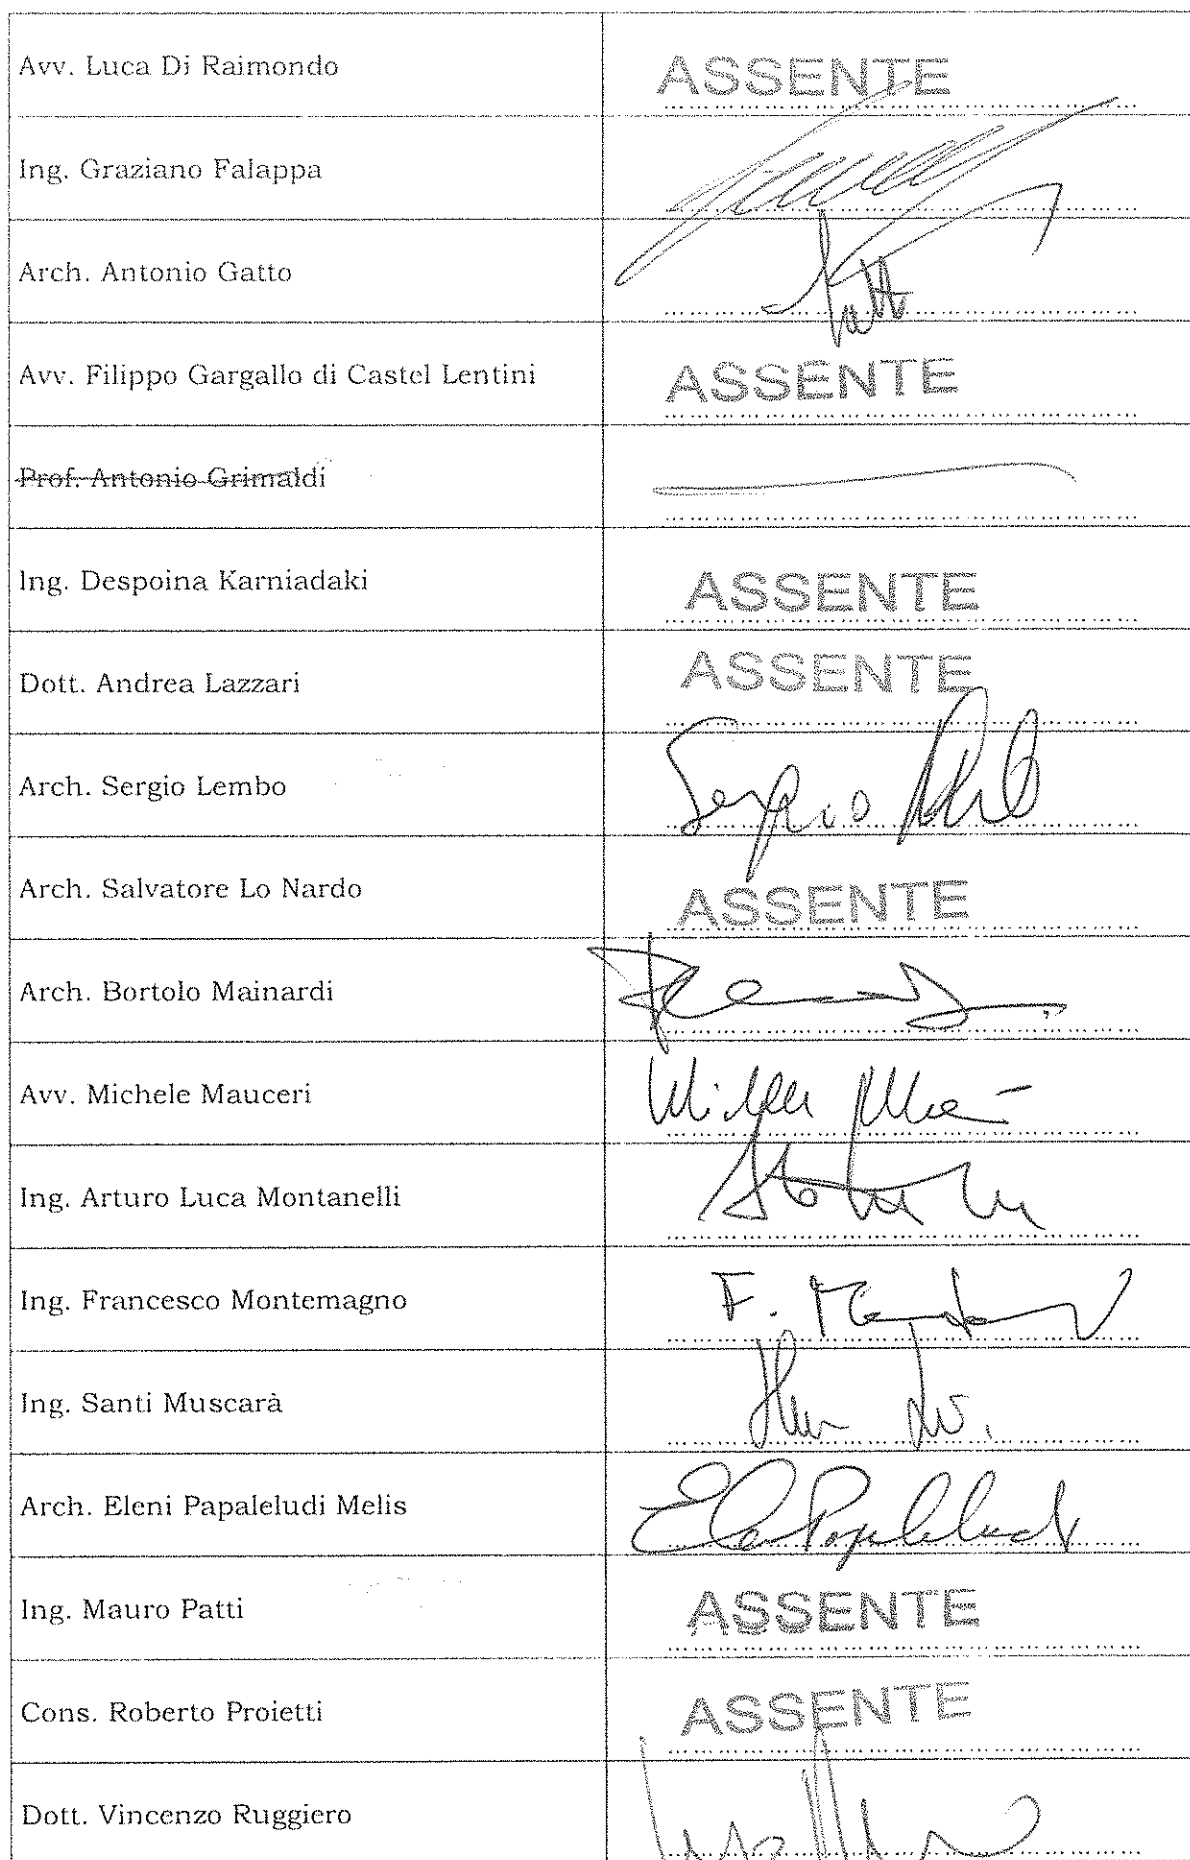 Avv. Luca Di Raimondo ASSENTE
Ing. Graziano Falappa
Arch. Antonio Gatto
Avv. Filippo Gargallo di Castel Lentini ASSENTE
Prof. Antonio Grimaldi
Ing. Despoina Karniadaki ASSENTE
Dott. Andrea Lazzari ASSENTE
Arch. Sergio Lembo Sergio
Arch. Salvatore Lo Nardo ASSENTE
Arch. Bortolo Mainardi
Avv. Michele Mauceri
Ing. Arturo Luca Montanelli
Ing. Francesco Montemagno F.
Ing. Santi Muscarà
Arch. Eleni Papaleludi Melis
Ing. Mauro Patti ASSENTE
Cons. Roberto Proietti ASSENTE
Dott. Vincenzo Ruggiero